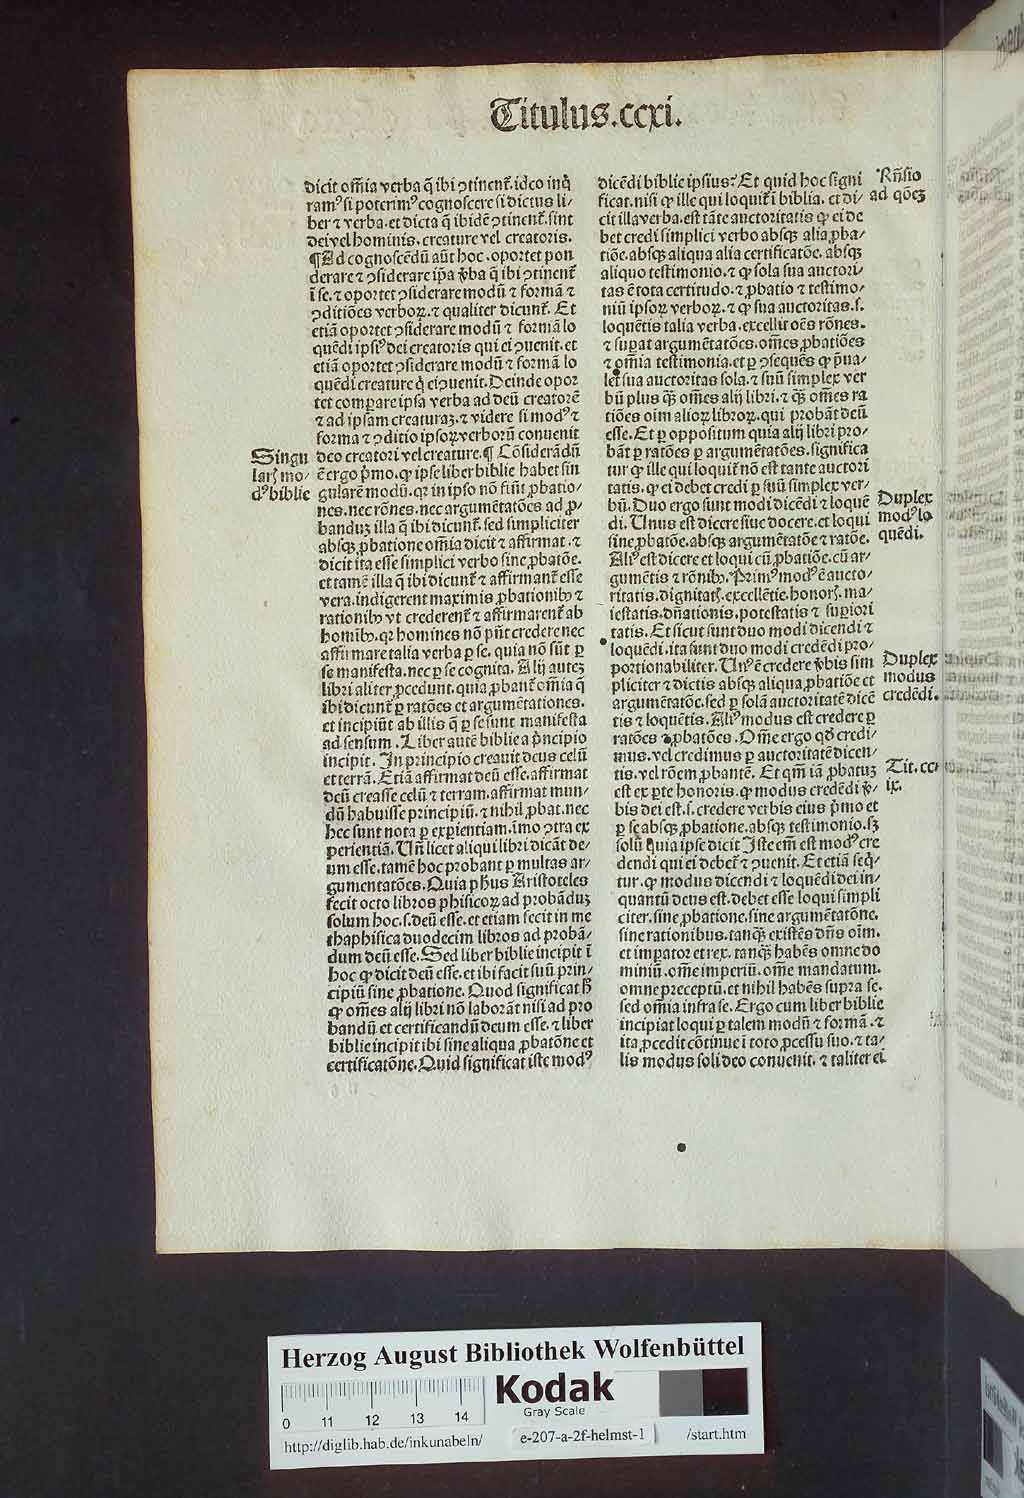 Titulus.ccxi.
dicit om̄ia verba q̄ ibi ꝯtinent᷑.ideo inq̇
ramꝰ si poterimꝰ cognoscere si dictus li⸗
ber ⁊ verba.et dicta q̄ ibidē ꝯtinent᷑.sint
dei vel hominis.creature vel creatoris.
¶Ad cognoscēdū aūt hoc.oportet pon
derare ⁊ ꝯsiderare ip̄a v̓ba q̄ ibi ꝯtinent᷑
ī se.⁊ oportet ꝯsiderare modū ⁊ formā ⁊
ꝯditiōes verboꝝ.⁊ qualiter dicunt᷑. Et
etiā oportet ꝯsiderare modū ⁊ formā lo
quēdi ipsiꝰ dei creatoris qui ei ꝯuenit.et
etiā oportet ꝯsiderare modū ⁊ formā lo
quēdi creature q̇ ei ꝯuenit.Deinde opor
tet comꝑare ipsa verba ad deū creatorē
⁊ ad ipsam creaturaꝫ.⁊ videre si modꝰ ⁊
forma ⁊ ꝯditio ipsoꝝ verborū conuenit
deo creatori vel creature.¶ Cōsiderādū
ē ergo p̓mo.ꝙ ipse liber biblie habet sin
gularē modū.qꝛ in ipso nō fiūt ꝓbatio⸗
nes.nec rōnes.nec argumētatōes ad ꝓ⸗
banduꝫ illa q̄ ibi dicunt᷑.sed simpliciter
absqꝫ ꝓbatione om̄ia dicit ⁊ affirmat.⁊
dicit ita esse simplici verbo sine ꝓbatōe.
et tamē illa q̄ ibi dicunt᷑ ⁊ affirmant᷑ esse
vera.indigerent maximis ꝓbationibꝫ ⁊
rationibꝫ vt crederent᷑ ⁊ affirmarent᷑ ab
homībꝫ.qꝛ homines nō pn̄t credere nec
affirmare talia verba ꝑ se.quia nō sūt ꝑ
se manifesta.nec ꝑ se cognita. Alij auteꝫ
libri aliter ꝓcedunt.quia ꝓbant᷑ om̄ia q̄
ibi dicunt᷑ ꝑ ratōes et argumētationes.
et incipiūt ab illis q̄ ꝑ se sunt manifesta
ad sensum. Liber autē biblie a p̓ncipio
incipit. In principio creauit deus celū
et terrā. Etiā affirmat deū esse.affirmat
deū creasse celū ⁊ terram.affirmat mun⸗
dū habuisse principiū.⁊ nihil ꝓbat.nec
hec sunt nota ꝑ exꝑientiam.īmo ꝯtra ex
perientiā. Un̄ licet aliqui libri dicāt de⸗
um esse.tamē hoc probant ꝑ multas ar⸗
gumentatōes.Quia ph̄us Aristoteles
fecit octo libros phisicoꝝ ad probāduꝫ
solum hoc.s.deū esse.et etiam fecit in me
thaphisica duodecim libros ad probā⸗
dum deū esse.Sed liber biblie incipit ī
hoc ꝙ dicit deū esse.et ibi facit suū prin⸗
cipiū sine ꝓbatione. Quod significat h̄
ꝙ om̄es alij libri nō laborāt nisi ad pro
bandū et certificandū deum esse.⁊ liber
biblie incipit ibi sine aliqua ꝓbatōne et
certificatōne.Quid significat iste modꝰ
Singu
larꝭ mo⸗
dꝰ biblie
dicēdi biblie ipsius? Et quid hoc signi
ficat.nisi ꝙ ille qui loquit᷑ ī biblia.et di⸗
cit illa verba.est tāte auctoritatis ꝙ ei de
bet credi simplici verbo absqꝫ alia ꝓba⸗
tiōe.absqꝫ aliqua alia certificatōe.absqꝫ
aliquo testimonio.⁊ ꝙ sola sua auctori⸗
tas ē tota certitudo.⁊ ꝓbatio ⁊ testimo⸗
niū ipsoꝝ verboꝝ.⁊ ꝙ sua auctoritas.s.
loquētis talia verba.excellit oēs rōnes.
⁊ suꝑat argumētatōes.om̄es ꝓbatiōes
⁊ om̄ia testimonia.et ꝑ ꝯsequēs ꝙ p̄ua⸗
let sua auctoritas sola.⁊ suū simplex ver
bū plus qꝫ̄ om̄es alij libri.⁊ qꝫ̄ om̄es ra
tiōes oīm alioꝝ libroꝝ.qui probāt deū
esse. Et ꝑ oppositum quia alij libri pro⸗
bāt ꝑ ratōes ꝑ argumētatōes.significa
tur ꝙ ille qui loquit᷑ nō est tante auctori
tatis.ꝙ ei debet credi ꝑ suū simplex ver⸗
bū. Duo ergo sunt modi dicēdi ⁊ loquē
di. Unus est dicere siue docere.et loqui
sine ꝓbatōe.absqꝫ argumētatōe ⁊ ratōe.
Aliꝰ est dicere et loqui cū ꝓbatiōe.cū ar⸗
gumētis ⁊ rōnibꝫ.Primꝰ modꝰ ē aucto⸗
ritatis.dignitatꝭ.excellētie.honorꝭ.ma⸗
iestatis.dn̄ationis.potestatis ⁊ suꝑiori
tatis. Et sicut sunt duo modi dicendi ⁊
loquēdi.ita sunt duo modi credēdi pro⸗
portionabiliter. Unꝰ ē credere v̓bis sim
pliciter ⁊ dictis absqꝫ aliqua ꝓbatiōe et
argumētatōe.sed ꝑ solā auctoritatē dicē
tis ⁊ loquētis. Aliꝰ modus est credere ꝑ
ratōes ⁊ ꝓbatōes. Om̄e ergo qd̓ credi⸗
mus.vel credimus ꝑ auctoritatē dicen⸗
tis.vel rōem ꝓbantē. Et qm̄ iā ꝓbatuꝫ
est ex ꝑte honoris.ꝙ modus credēdi v̓⸗
bis dei est.s.credere verbis eius p̓mo et
ꝑ se absqꝫ ꝓbatione.absqꝫ testimonio.sꝫ
solū quia ipse dicit Iste em̄ est modꝰ cre
dendi qui ei debet᷑ ⁊ ꝯuenit. Et etiā seq̇⸗
tur.ꝙ modus dicendi ⁊ loquēdi dei in⸗
quantū deus est.debet esse loqui simpli
citer.sine ꝓbatione.sine argumētatōne.
sine rationibus.tanqꝫ̄ existēs dn̄s oīm.
et imꝑator et rex.tanqꝫ̄ habēs omne do
miniū.om̄e imperiū.om̄e mandatum.
omne preceptū.et nihil habēs supra se.
sed om̄ia infra se. Ergo cum liber biblie
incipiat loqui ꝑ talem modū ⁊ formā.⁊
ita ꝓcedit cōtinue ī toto ꝓcessu suo.⁊ ta⸗
lis modus soli deo conuenit.⁊ taliter ei
Rn̄sio
ad qōeꝫ
Duplex
modꝰ lo
quēdi.
Duplex
modus
credēdi.
Tit.cc
ix.
Herzog August Bibliothek Wolfenbüttel
0 11 12 13 14
Kodak
Gray Scale
http://diglib.hab.de/inkunabeln/
e-207-a-2f-helmst-1
/start.htm